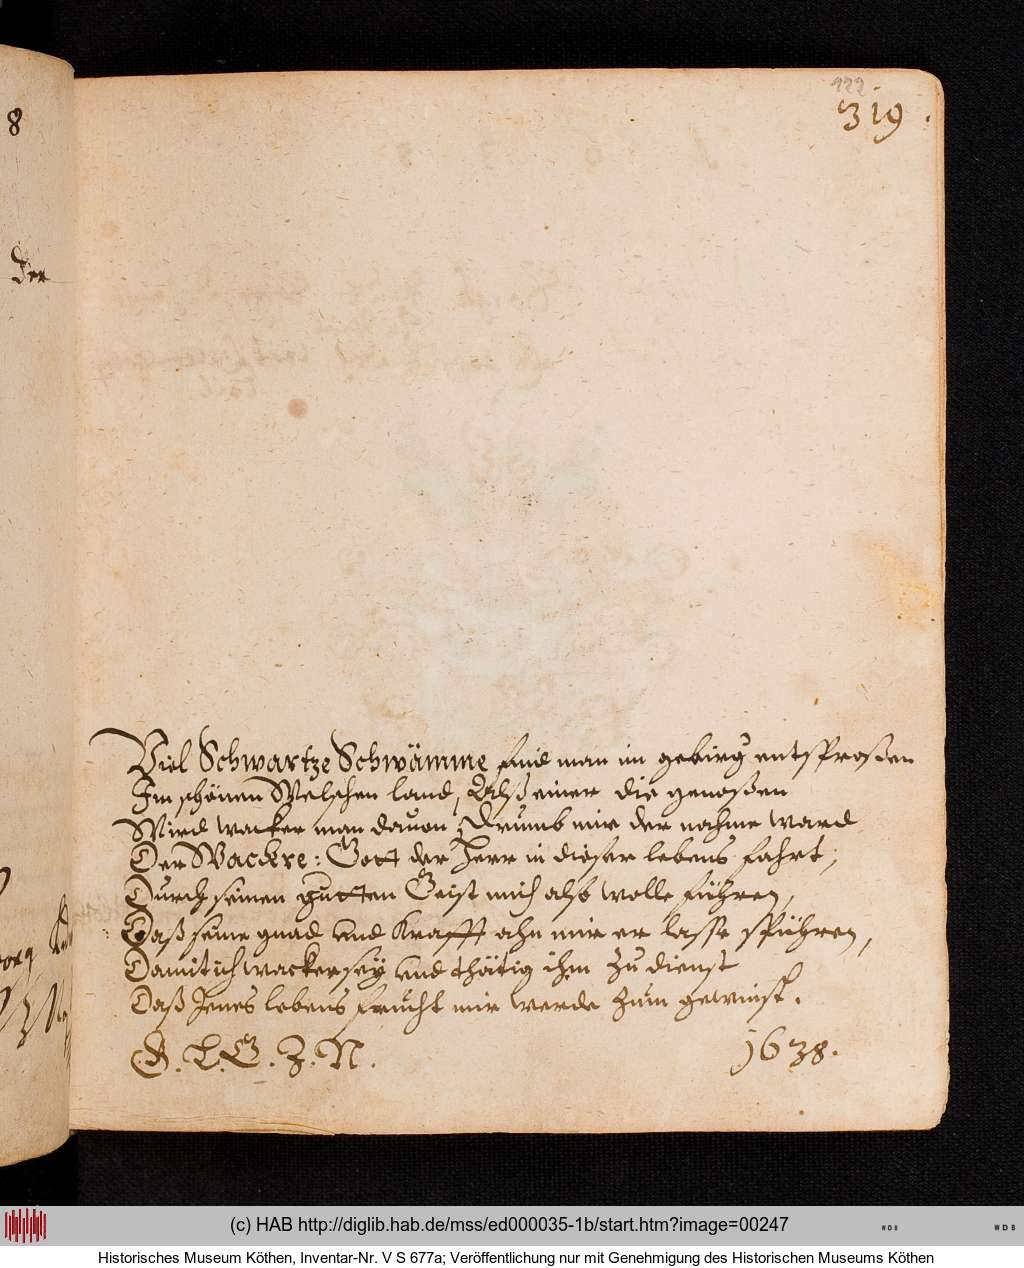 122
319.
8
Der
Viel Schwartze Schwämme find man im gebirg entsproßen
Im schönen Welschen land, Alß einer die genoßen
Wird wacker man dauon, Drumb mir der nahme ward
Der Wackre: Gott der Herr in dieser lebens fahrt,
Durch seinen gutten Geist mich also wolle führen,
Daß seine gnad und Krafft ahn mir er lasse spühren,
Damit ich wacker sey und thätig ihm zu dienst
Daß Jenes lebens frucht mir werde zum gewinst.
G. L. G. Z. N. 1638.
(c) HAB http://diglib.hab.de/mss/ed000035-1b/start.htm?image=00247
WDB WDB
Historisches Museum Köthen, Inventar-Nr. V S 677a; Veröffentlichung nur mit Genehmigung des Historischen Museums Köthen